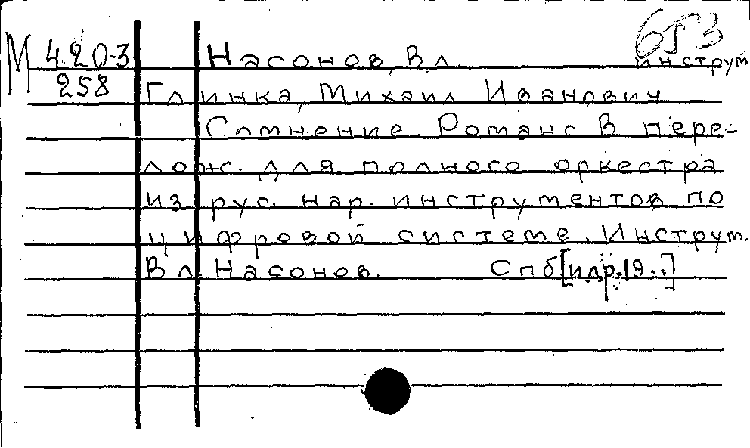 М 420-3 Насонов, Вл. 653
258 инструм.
Глинка, Михаил Иванович
Сомнение. Романс в пере-
лож. для полного оркестра
из рус. нар. инструментов по
цифровой системе. Инструм.
Вл. Насонов. Спб [и др. 19..]